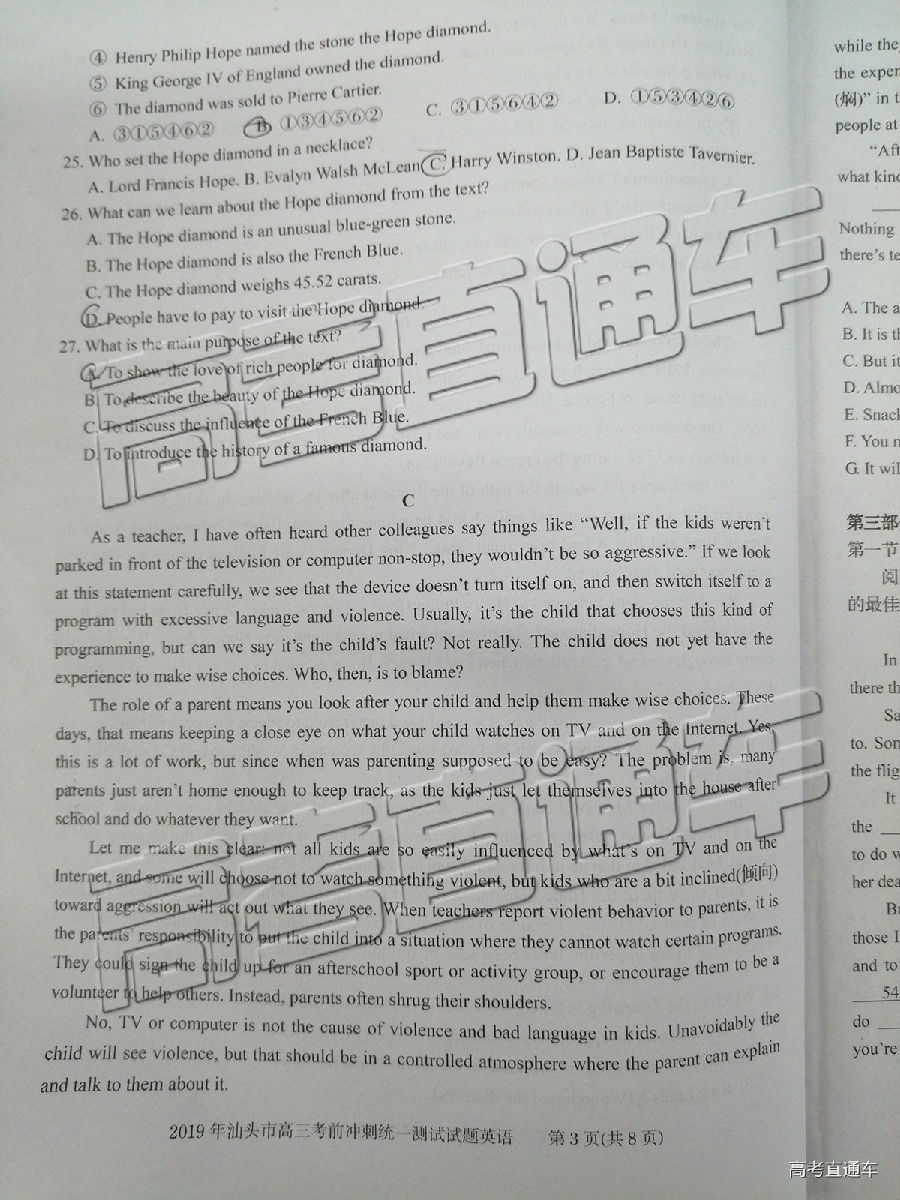 ④ Henry Philip Hope named the stone the Hope diamond.
⑤ King George IV of England owned the diamond.
⑥ The diamond was sold to Pierre Cartier.
A. ③①⑤④⑥② B. ①③④⑤⑥② C. ③①⑤⑥④② D. ①⑤③④②⑥
25. Who set the Hope diamond in a necklace?
A. Lord Francis Hope. B. Evalyn Walsh McLean C. Harry Winston. D. Jean Baptiste Tavernier.
26. What can we learn about the Hope diamond from the text?
A. The Hope diamond is an unusual blue-green stone.
B. The Hope diamond is also the French Blue.
C. The Hope diamond weighs 45.52 carats.
D. People have to pay to visit the Hope diamond.
27. What is the main purpose of the text?
A. To show the love of rich people for diamond.
B. To describe the beauty of the Hope diamond.
C. To discuss the influence of the French Blue.
D. To introduce the history of a famous diamond.
C
As a teacher, I have often heard other colleagues say things like “Well, if the kids weren’t
parked in front of the television or computer non-stop, they wouldn’t be so aggressive.” If we look
at this statement carefully, we see that the device doesn’t turn itself on, and then switch itself to a
program with excessive language and violence. Usually, it’s the child that chooses this kind of
programming, but can we say it’s the child’s fault? Not really. The child does not yet have the
experience to make wise choices. Who, then, is to blame?
The role of a parent means you look after your child and help them make wise choices. These
days, that means keeping a close eye on what your child watches on TV and on the Internet. Yes,
this is a lot of work, but since when was parenting supposed to be easy? The problem is, many
parents just aren’t home enough to keep track, as the kids just let themselves into the house after
school and do whatever they want.
Let me make this clear: not all kids are so easily influenced by what’s on TV and on the
Internet, and some will choose not to watch something violent, but kids who are a bit inclined(倾向)
toward aggression will act out what they see. When teachers report violent behavior to parents, it is
the parents’ responsibility to put the child into a situation where they cannot watch certain programs.
They could sign the child up for an afterschool sport or activity group, or encourage them to be a
volunteer to help others. Instead, parents often shrug their shoulders.
No, TV or computer is not the cause of violence and bad language in kids. Unavoidably the
child will see violence, but that should be in a controlled atmosphere where the parent can explain
and talk to them about it.
2019年汕头市高三考前冲刺统一测试试题英语 第3页(共8页)
while the
the exper
(焖)” in t
people at
“Aft
what kind
Nothing
there’s te
A. The a
B. It is th
C. But it
D. Almo
E. Snack
F. You n
G. It wil
第三部
第一节
阅
的最佳
In
there th
Sa
to. Son
the flig
It
the
to do w
her dea
Bu
those I
and to
54
do
you’re
高考直通车
高考直通车
高考直通车